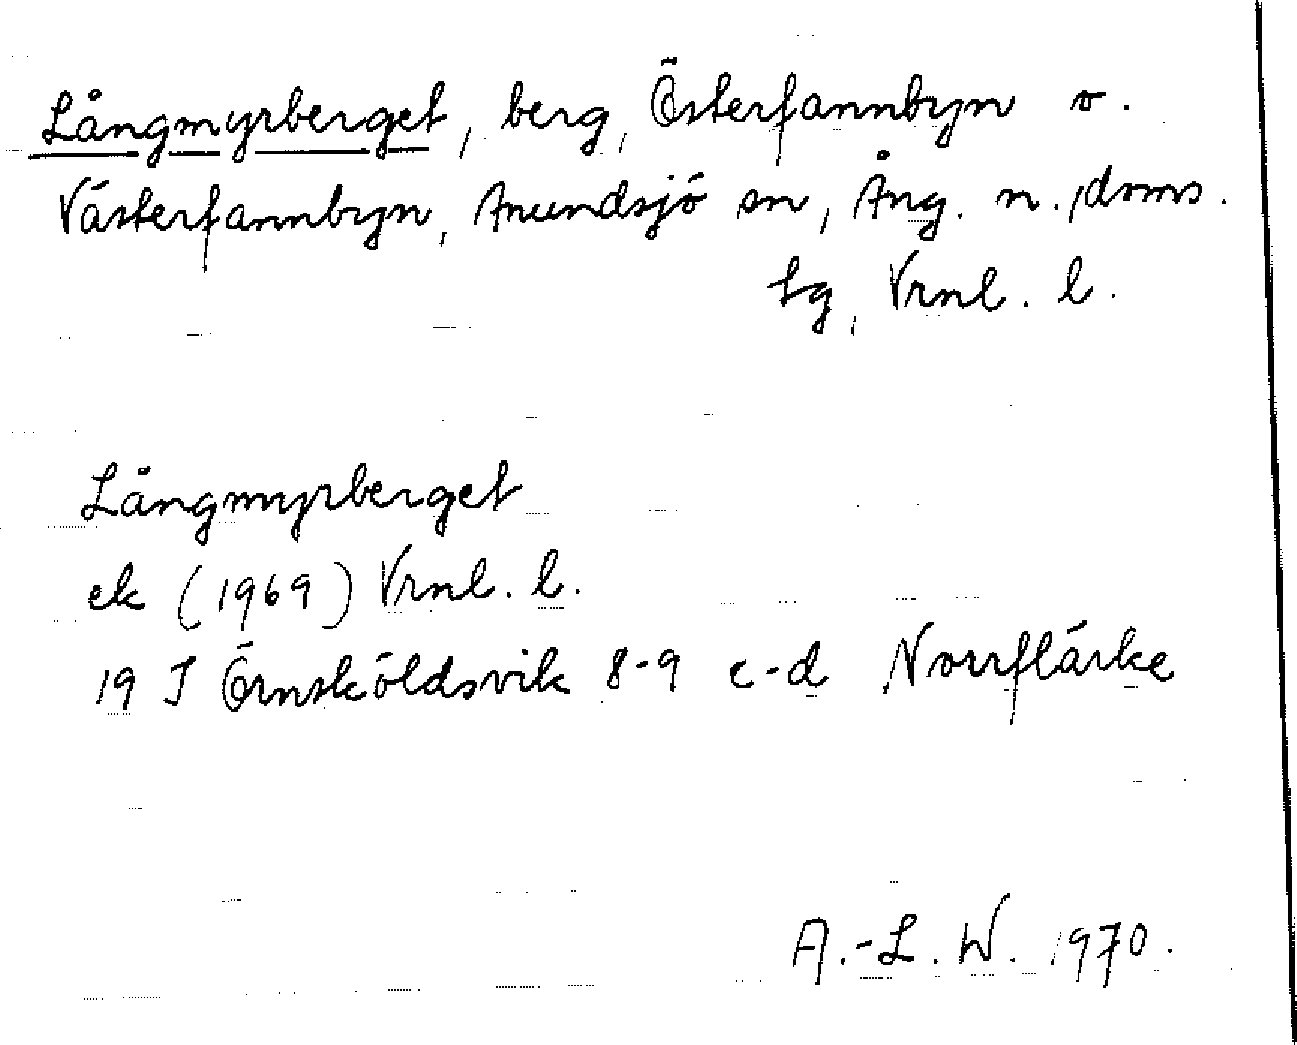 Långmyrberget, berg, Österfannbyn o.
Västerfannbyn, Anundsjö sn, Ång. n. doms.
tg, Vrnl. l.
Långmyrberget
ek (1969) Vrnl. l.
19 J Örnsköldsvik 8-9 c-d Norrflärke
A.-L. W. 1970.